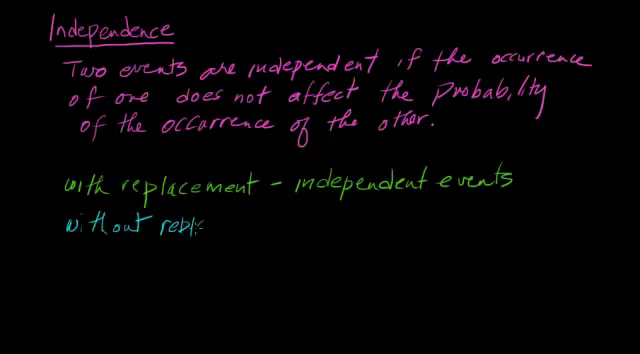 Independence
Two events are independent if the occurrence
of one does not affect the Probability
of the occurrence of the other.
with replacement - independent events
without repl